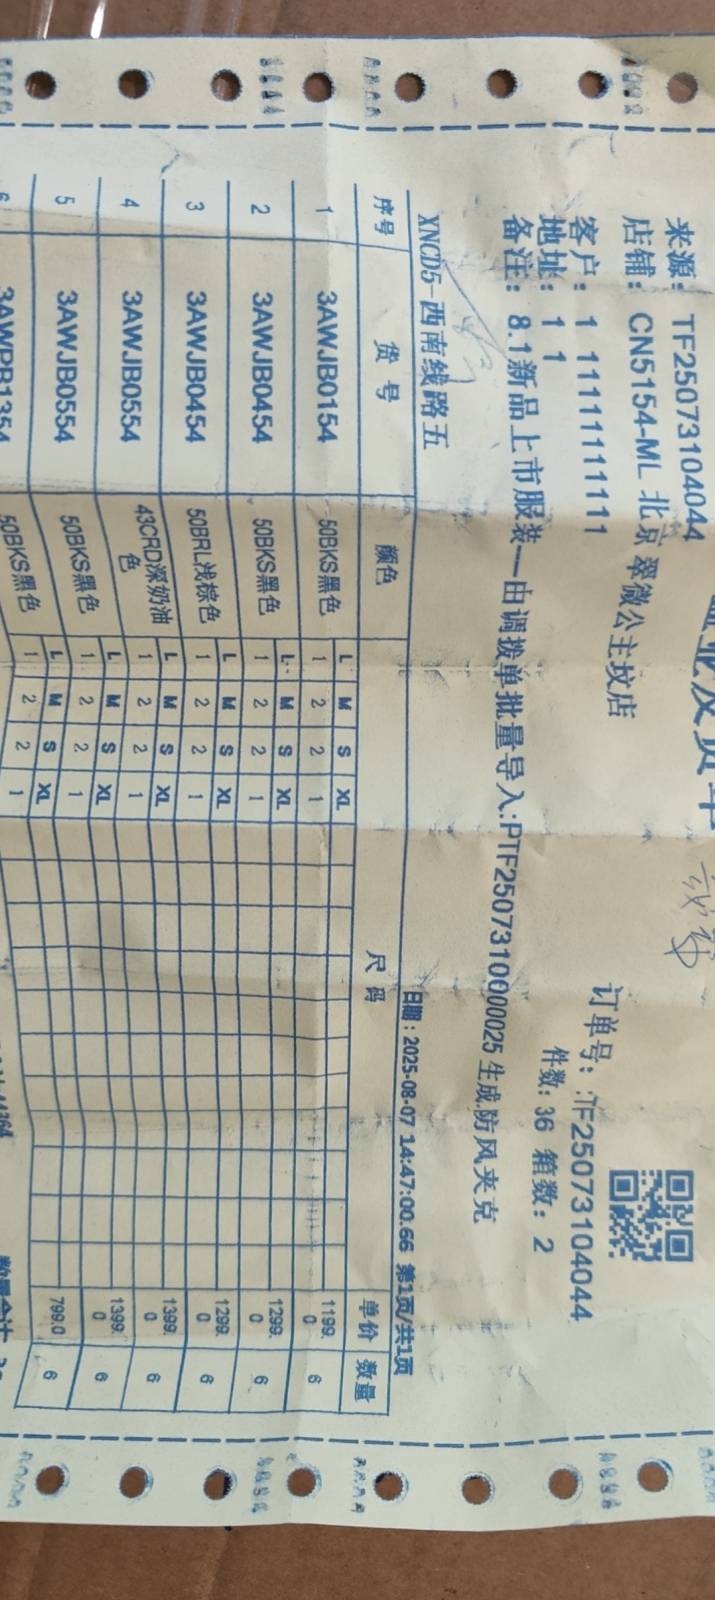 来源: TF25073104044
店铺: CN5154-ML 北京翠微公主坟店
订单号: TF25073104044
客户: 1 11111111111
件数: 36 箱数: 2
地址: 1 1
备注: 8.1新品上市服装—由调拨单批量导入:PTF2507310000025生成.防风夹克
XNCD5-西南线路五
日期: 2025-08-07 14:47:00.66 第1页/共1页
序号 货号 颜色 尺码 单价 数量
L M S XL
1 3AWJB0154 50BKS黑色 1 2 2 1 1199.0 6
L M S XL
2 3AWJB0454 50BKS黑色 1 2 2 1 1299.0 6
L M S XL
3 3AWJB0454 50BRL浅棕色 1 2 2 1 1299.0 6
L M S XL
4 3AWJB0554 43CRD深奶油色 1 2 2 1 1399.0 6
L M S XL
5 3AWJB0554 50BKS黑色 1 2 2 1 1399.0 6
L M S XL
6 3AWPB1354 50BKS黑色 1 2 2 1 799.0 6